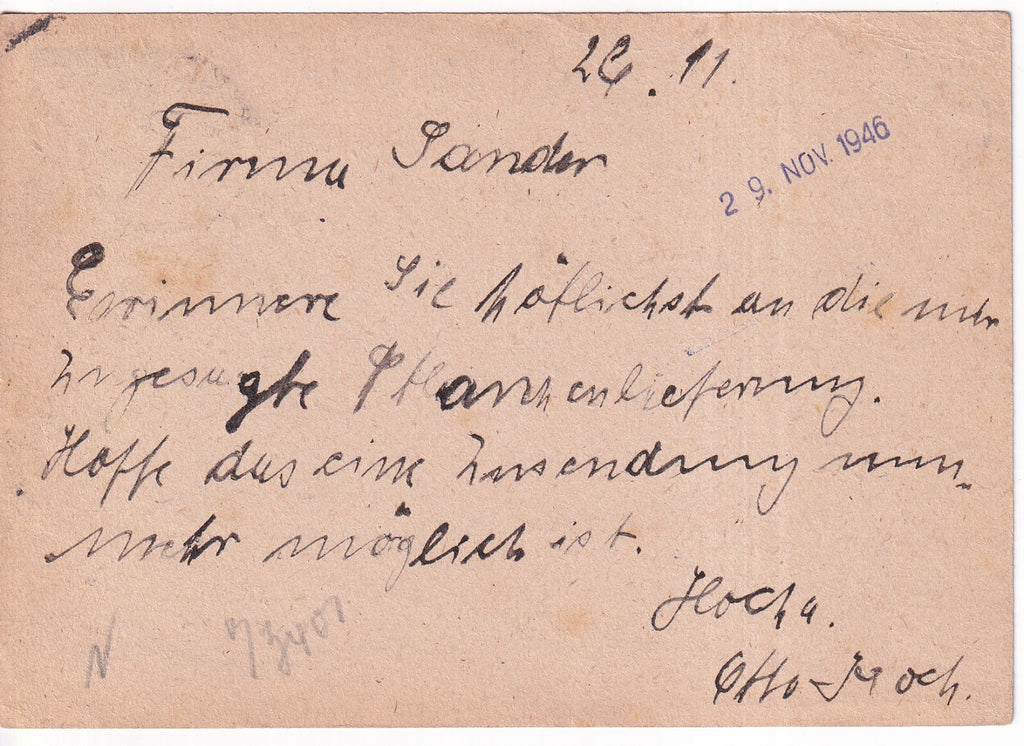 26.11.
Firma Sander
29. NOV. 1946
Erinnere Sie höflichst an die mir
zugesagte Pflanzenlieferung.
Hoffe das eine Zusendung nun-
mehr möglich ist.
Hocha.
Otto Koch.
N 73401